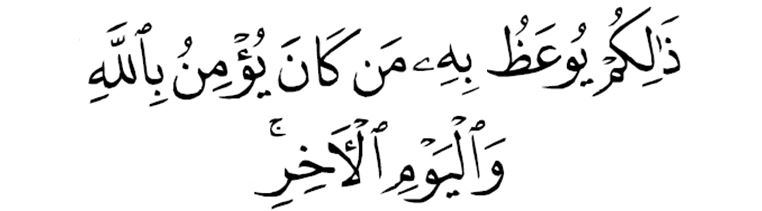 ذَٰلِكُمۡ يُوعَظُ بِهِۦ مَن كَانَ يُؤۡمِنُ بِٱللَّهِ
وَٱلۡيَوۡمِ ٱلۡأَخِرِۚ